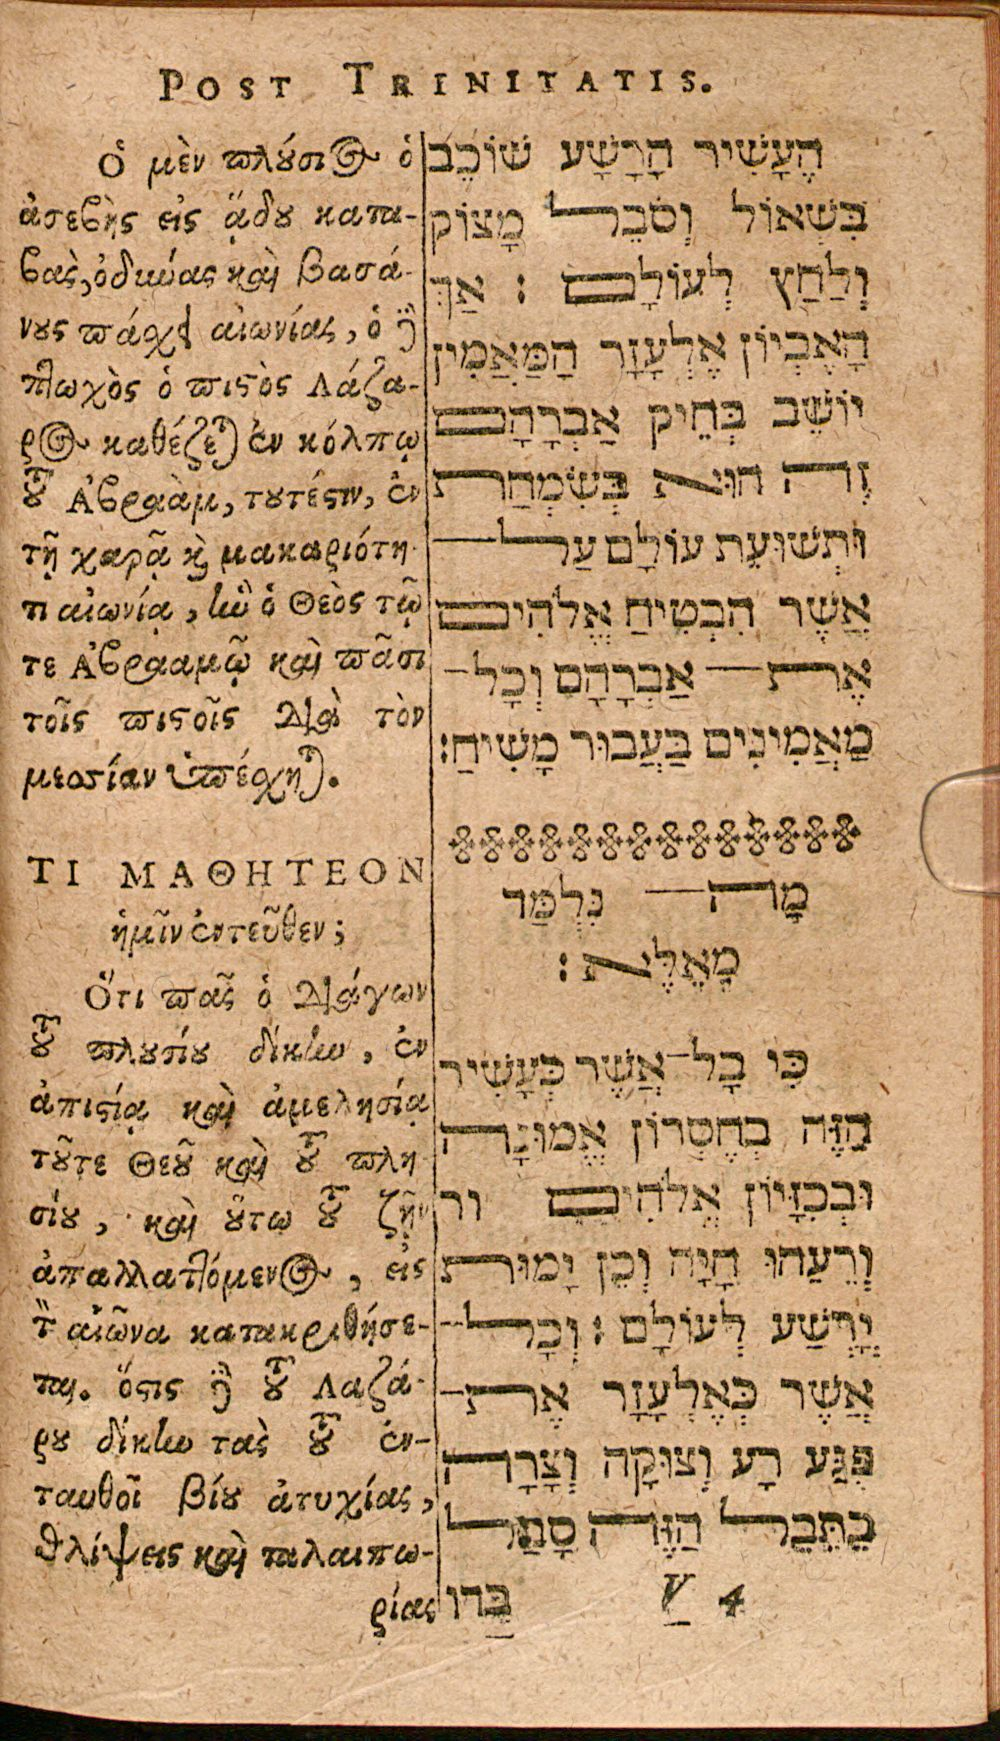 POST TRINITATIS.
Ὁ μὲν πλούσιος ὁ
ἀσεβὴς εἰς ᾅδου κατα-
βὰς, ὀδύνας καὶ βασά-
νους πάσχει αἰωνίας, ὁ δὲ
πτωχὸς ὁ πιστὸς Λάζα-
ρος καθέζεται ἐν κόλπῳ
τοῦ Ἀβραὰμ, τουτέστιν, ἐν
τῇ χαρᾷ καὶ μακαριότη-
τι αἰωνίᾳ, ἣν ὁ Θεὸς τῷ
τε Ἀβρααμῷ καὶ πᾶσι
τοῖς πιστοῖς διὰ τὸν
μεσσίαν ὑπέσχηται.
ΤΙ ΜΑΘΗΤΕΟΝ
ἡμῖν ἐντεῦθεν;
Ὅτι πᾶς ὁ διάγων
τοῦ πλουσίου δίκην, ἐν
ἀπιστίᾳ καὶ ἀμελησίᾳ
τοῦτε Θεοῦ καὶ τοῦ πλη-
σίου, καὶ οὕτω τοῦ ζῆν
ἀπαλλαττόμενος, εἰς
τὸν αἰῶνα κατακριθήσε-
ται. ὅστις δὲ τοῦ Λαζά-
ρου δίκην τὰς τοῦ ἐν-
ταυθοῖ βίου ἀτυχίας,
θλίψεις καὶ ταλαιπω-
ρίας
הֶעָשִׁיר הָרָשָׁע שׁוֹכֵב
בִּשְׁאוֹל וְסֹבֵל מָצוֹק
וְלַחַץ לְעוֹלָם : אַךְ
הָאֶבְיוֹן אֶלְעָזָר הַמַּאֲמִין
יוֹשֵׁב בְּחֵיק אַבְרָהָם
זֶה הוּא בְּשִׂמְחַת
וּתְשׁוּעַת עוֹלָם עַל־
אֲשֶׁר הִבְטִיחַ אֱלֹהִים
אֶת־ אַבְרָהָם וְכָל־
מַאֲמִינִים בַּעֲבוּר מָשִׁיחַ:
מָה־ נִּלְמַד
מֵאֵלֶּא :
כִּי כָל־אֲשֶׁר כְּעָשִׁיר
הַזֶּה בְּחֶסְרוֹן אֱמוּנָה
וּבְבִזָּיוֹן אֱלֹהִים ור
וְרֵעֵהוּ חָיָה וְכֵן יָמוּת
יָרְשַׁע לְעוֹלָם : וְכָל־
אֲשֶׁר כְּאֶלְעָזָר אֶת־
פֶּגַע רָע וְצוּקָה וְצָרָה
בְּתֵבֵל הַזֶּה סָבַל
בַּרו V 4